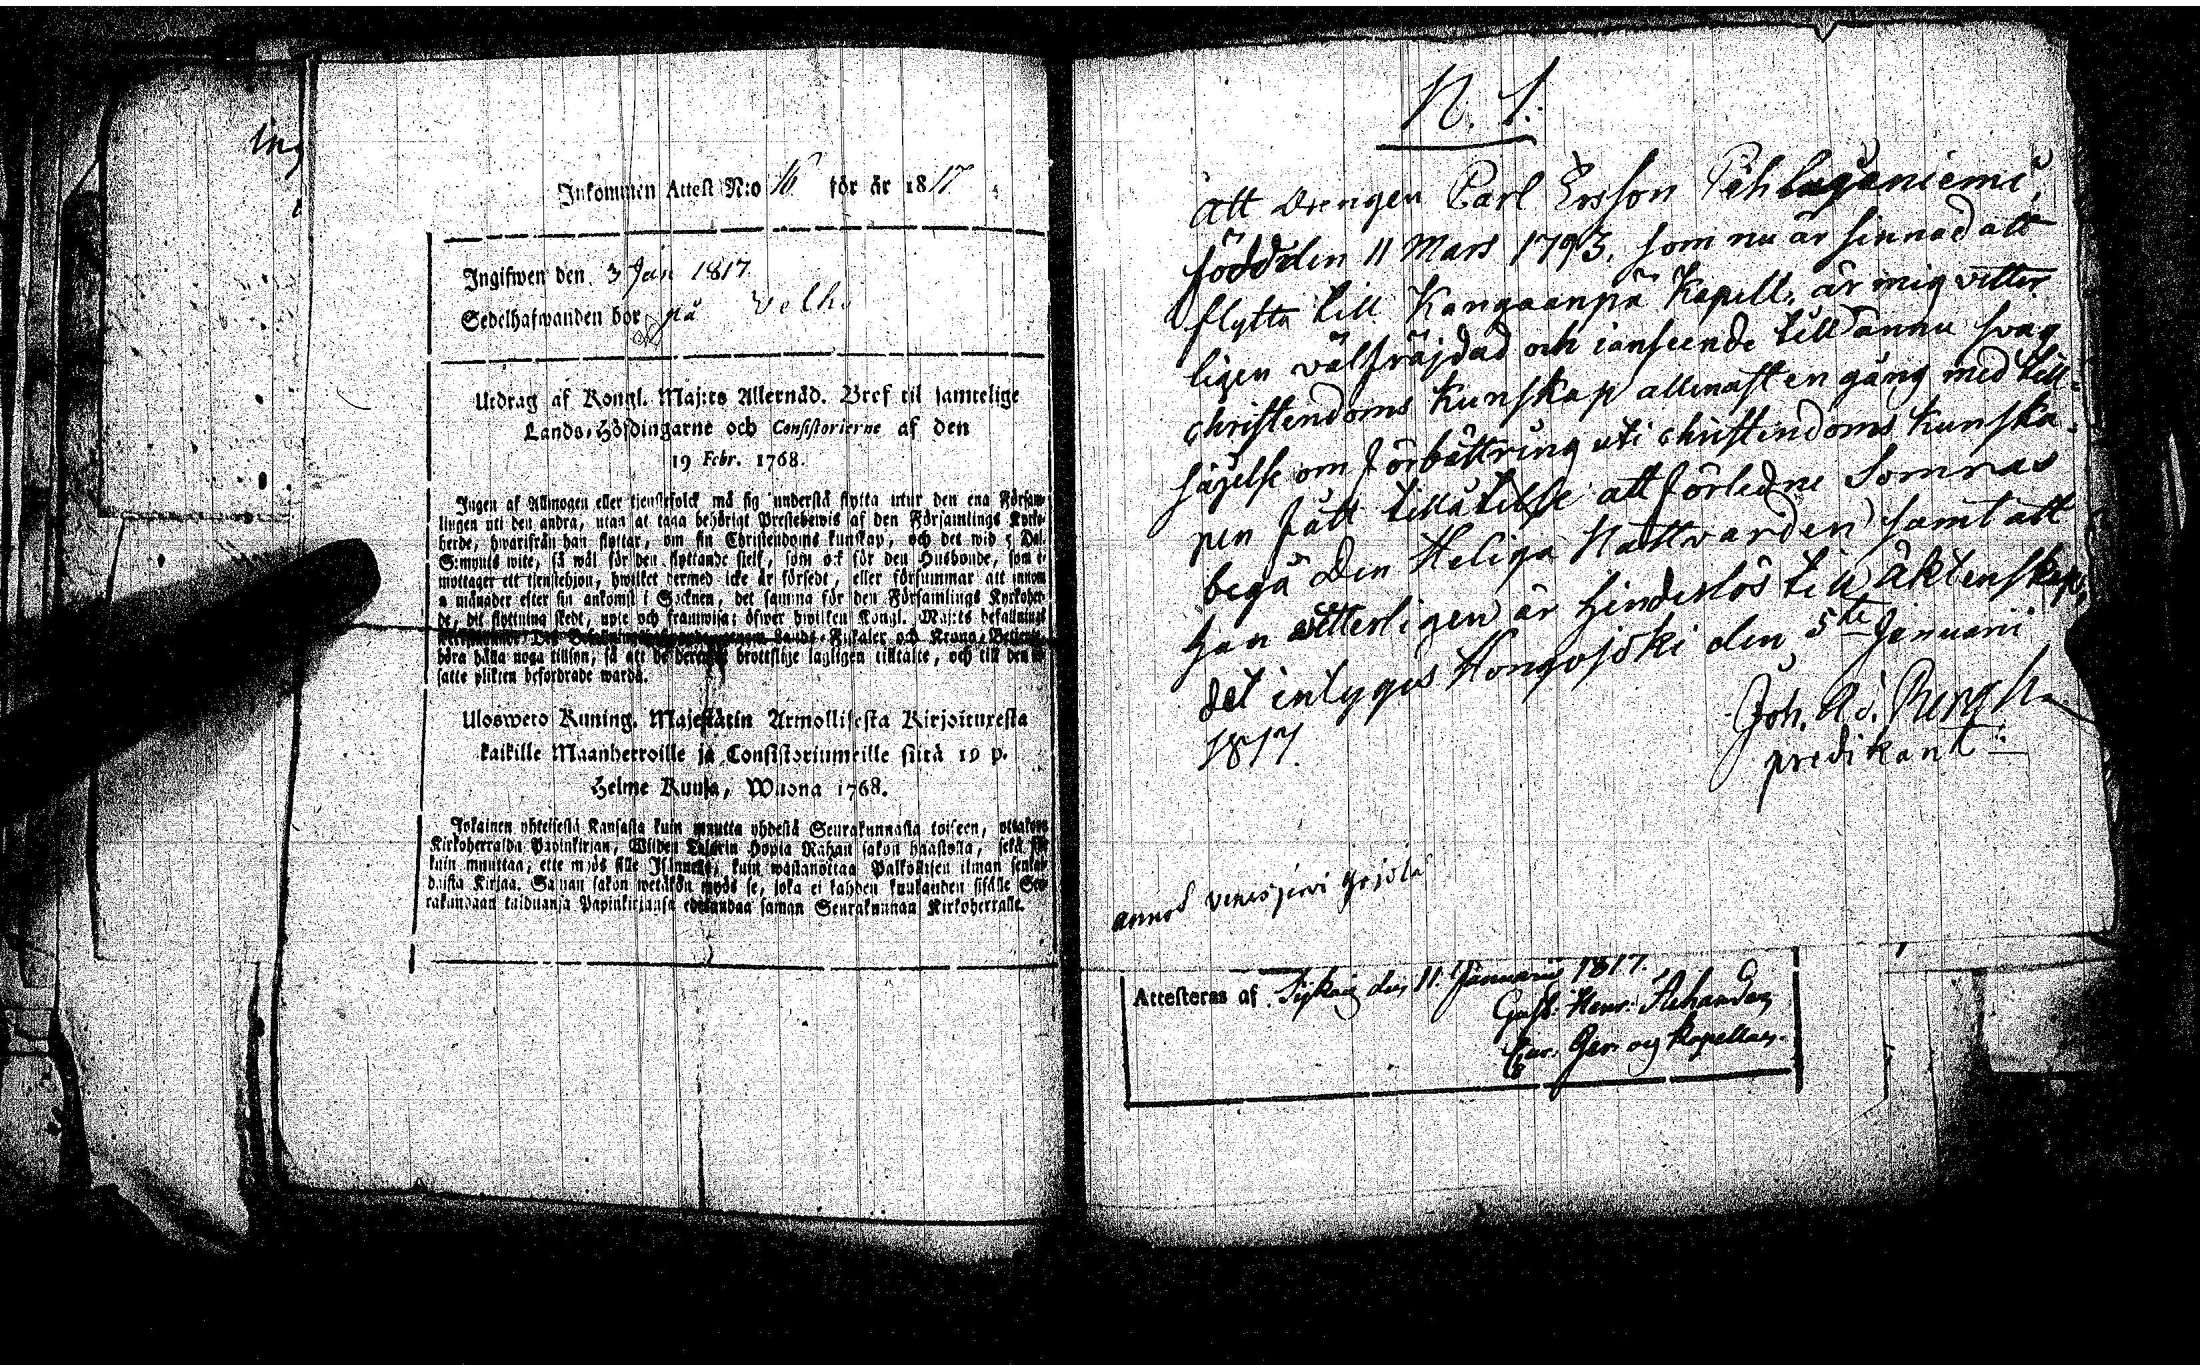 Inkommen Attest N:o 16 för år 1817.
Ingifwen den 3 Jan 1817
Sedelhafwanden bor på
Utdrag af Kongl. Maj:ts Allernåd. Bref til samtelige
Lands-Höfdingarne och Consistorierne af den
19 Febr. 1768.
Ingen af Allmogen eller tjenstefolck må sig understå flytta utur den ena Försam-
lingen uti den andra, utan at taga behörigt Prestebewis af den Församlings Kyrko-
herde, hwarifrån han flyttar, om sin Christendoms kunskap, och det wid 5 Dal.
S:mynts wite, så wäl för den flyttande sjelf, som ock för den Husbonde, som e-
mottager ett tjenstehjon, hwilket dermed icke är försedt, eller försummar att innom
2 månader efter sin ankomst i Socknen, det samma för den Församlings Kyrkoher-
de, dit flyttning skedt, upte och framwisa: öfwer hwilket Kongl. Maj:ts befallnings
Lands-Fiskaler och Krono-Betjente
böra hålla noga tillsyn, så att de brottslige lagligen tilltalte, och till den
satte plikten befordrade warda.
Ulosweto Kuning. Majestätin Armollisesta Kirjoituxesta
kaikille Maanherroille ja Consistoriumeille siitä 19 p.
Helme Kuusa, Wuona 1768.
Jokainen yhteisestä Kansasta kuin muutta yhdestä Seurakunnasta toiseen, ottakon
Kirkoherralda Papinkirjan, Wiiden Talarin Hopia Rahan sakon haastolla, sekä se
kuin muuttaa, ette myös sille Isännelle, kuin wastanottaa Palkollisen ilman senkal-
daista Kirjaa. Saman sakon wetäkön myös se, joka ei kahden kuukauden sisälle Seu-
rakundaan tulduansa Papinkirjansa edesandaa saman Seurakunnan Kirkoherralle.
N. 1.
Att Drengen Carl Ersson
född den 11 Mars 1793. som nu är sinnad att
flytta till Kangaanpä Kapell, är mig vetter-
ligen välfräjdad och i anseende till ännu svag
christendoms kunskap allenast en gång med till-
hjelp om förbättring uti christendoms kunska-
pen fått tillåtelse att förledne Sommas
begå den Heliga Nattvarden samt att
han vetterligen är hinderlös till äktenskap,
det intygas Hongojoki den 5te Januarii
1817.
Joh. Ad. Bergh.
predikant
Attesteras af den 11 Januarii 1817.
Gust. Henr.
Kapellan.